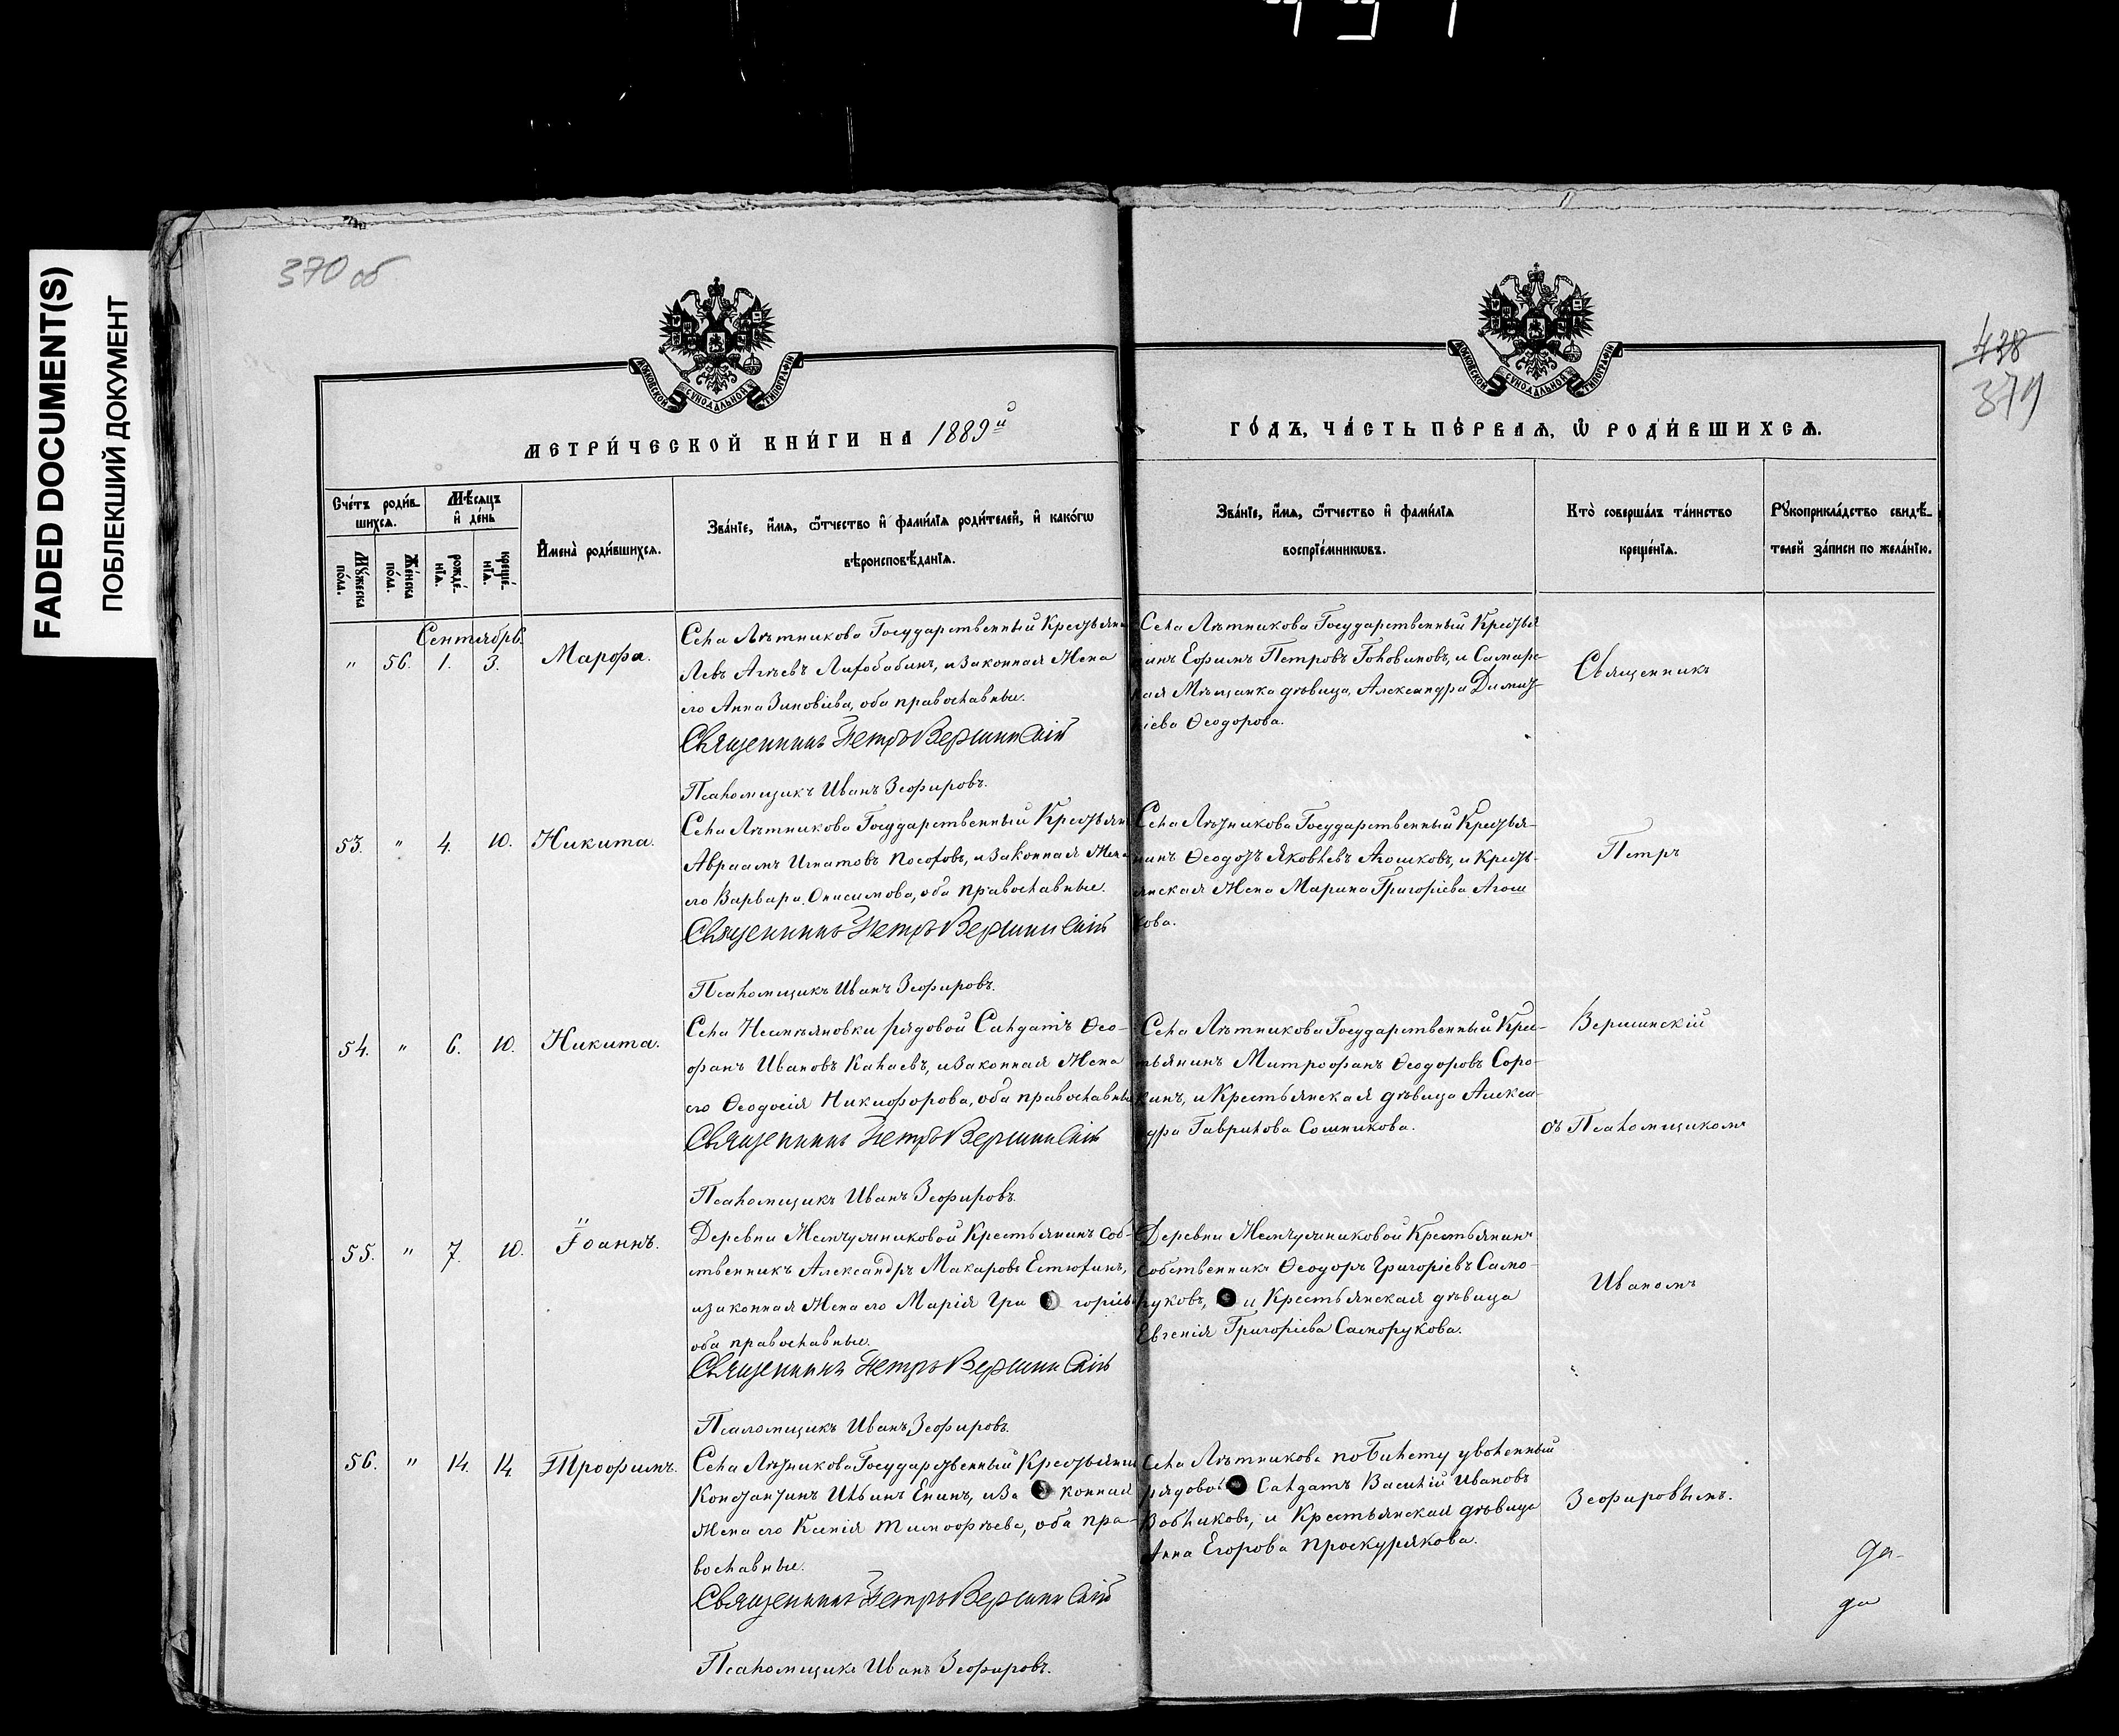 FADED DOCUMENT(S)
ПОБЛЕКШИЙ ДОКУМЕНТ
370 об
МОСКОВСКОЙ СѴНОДАЛЬНОЙ ТИПОГРАФІИ
МОСКОВСКОЙ СѴНОДАЛЬНОЙ ТИПОГРАФІИ
438
379
МЕТРИ́ЧЕСКОЙ КНИ́ГИ НА 1889й
ГО́ДЪ, ЧА́СТЬ ПЕ́РВАѦ, Ѡ҆ РОДИ́ВШИХСѦ.
Сче́тъ роди́в-
шихсѧ.
Мѣ́сѧцъ
и҆ де́нь
Мꙋ́жеска по́ла.
Же́нска по́ла.
рожде́-
нїѧ.
креще́-
нїѧ.
И҆мена̀ роди́вшихсѧ.
Зва́нїе, и҆́мѧ, ѻ҆́тчество и҆ фами́лїѧ роди́телей, и҆ како́гѡ
вѣроисповѣ́данїѧ.
Зва́нїе, и҆́мѧ, ѻ҆́тчество и҆ фами́лїѧ
воспрїе́мникѡвъ.
Кто̀ соверша́лъ та́инство
креще́нїѧ.
Рꙋкоприкла́дство свидѣ́-
телей за́писи по жела́нїю.
Сентябрь.
" 56. 1. 3. Марѳа.
Села Лѣтникова Государственный Крестьянин
Левъ Агѣевъ , и законная Жена
его Анна Зиновіева, оба православные.
Священникъ Петръ Вершинскій
Псаломщикъ Иванъ Зефировъ.
Села Лѣтникова Государственный Крестья
нинъ Ефимъ Петровъ Головиновъ, и Самарс-
кая Мѣщанка дѣвица, Александра Димит-
ріева Ѳеодорова.
Священникъ
53. " 4. 10. Никита.
Села Лѣтникова Государственный Крестьянин
Авраамъ Игнатовъ , и законная Жена
его Варвара Онисимова, оба православные.
Священникъ Петръ Вершинскій
Псаломщикъ Иванъ Зефировъ.
Села Лѣтникова Государственный Крестья-
нинъ Ѳеодотъ Яковлевъ Агошковъ, и Кресть-
янская Жена Марина Григоріева Агош
кова.
Петръ
54. " 6. 10. Никита.
Села Несмѣяновки рядовой Салдатъ Ѳео-
фанъ Ивановъ Калаевъ, и законная Жена
его Ѳеодосія Никифорова, оба православные
Священникъ Петръ Вершинскій
Псаломщикъ Иванъ Зефировъ.
Села Лѣтникова Государственный Крес-
тьянинъ Митрофанъ Ѳеодоровъ Соро-
кинъ, и Крестьянская дѣвица Алексан-
дра Гаврилова Сошникова.
Вершинскій
съ Псаломщикомъ
55. " 7. 10. Іоаннъ.
Деревни Жемчужниковой Крестьянинъ соб-
ственникъ Александръ Макаровъ ,
и законная Жена его Марія Григоріева
оба православные.
Священникъ Петръ Вершинскій
Псаломщикъ Иванъ Зефировъ.
Деревни Жемчужниковой Крестьянинъ
Собственникъ Ѳеодоръ Григоріевъ Само-
руковъ, и Крестьянская дѣвица
Евгенія Григоріева Саморукова.
Иваномъ
56. " 14. 14. Трофимъ.
Села Лѣтникова Государственный Крестьянин
Константинъ Ильинъ Енинъ, и законная
Жена его Ксенія Тимофѣева, оба пра-
вославные.
Священникъ Петръ Вершинскій
Псаломщикъ Иванъ Зефировъ.
Села Лѣтникова по билету уволенный
рядовой Салдатъ Василій Ивановъ
Вобликовъ, и Крестьянская дѣвица
Анна Егорова Проскурякова.
Зефировымъ.
да
да